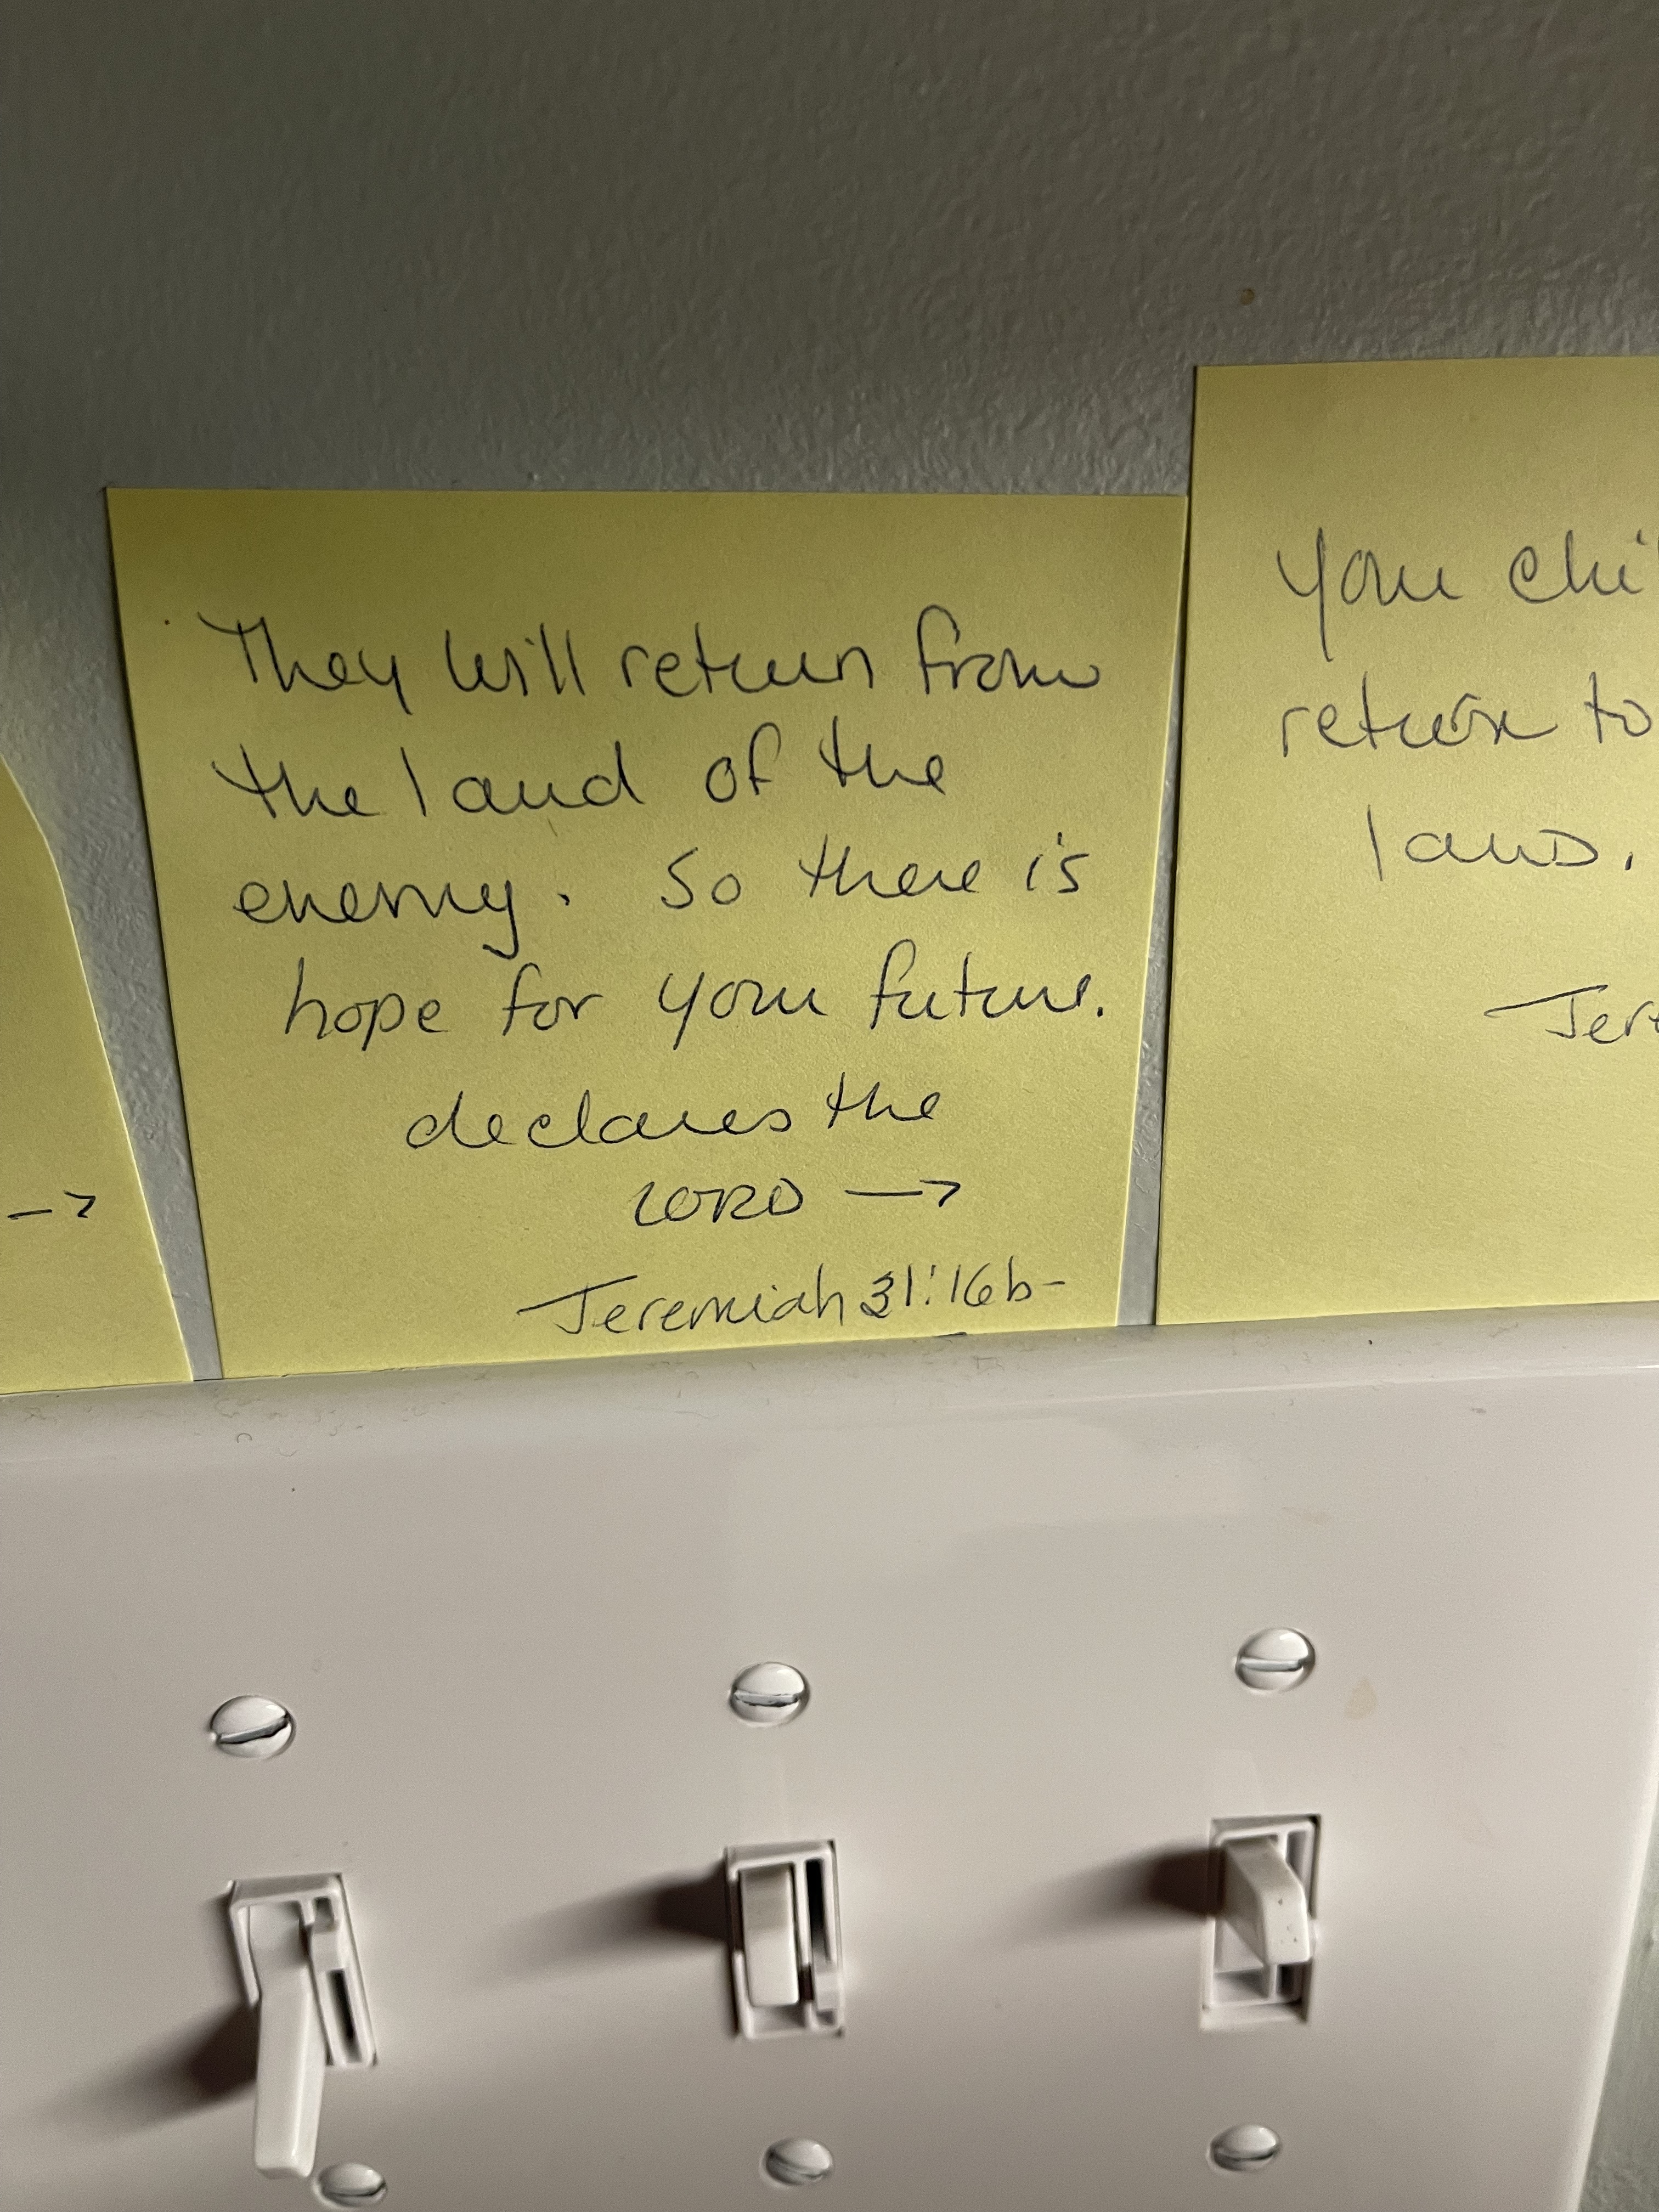 They will return from
the land of the
enemy. So there is
hope for your future.
declares the
LORD →
Jeremiah 31:16b-
your chi
return to
laws.
Jere
→